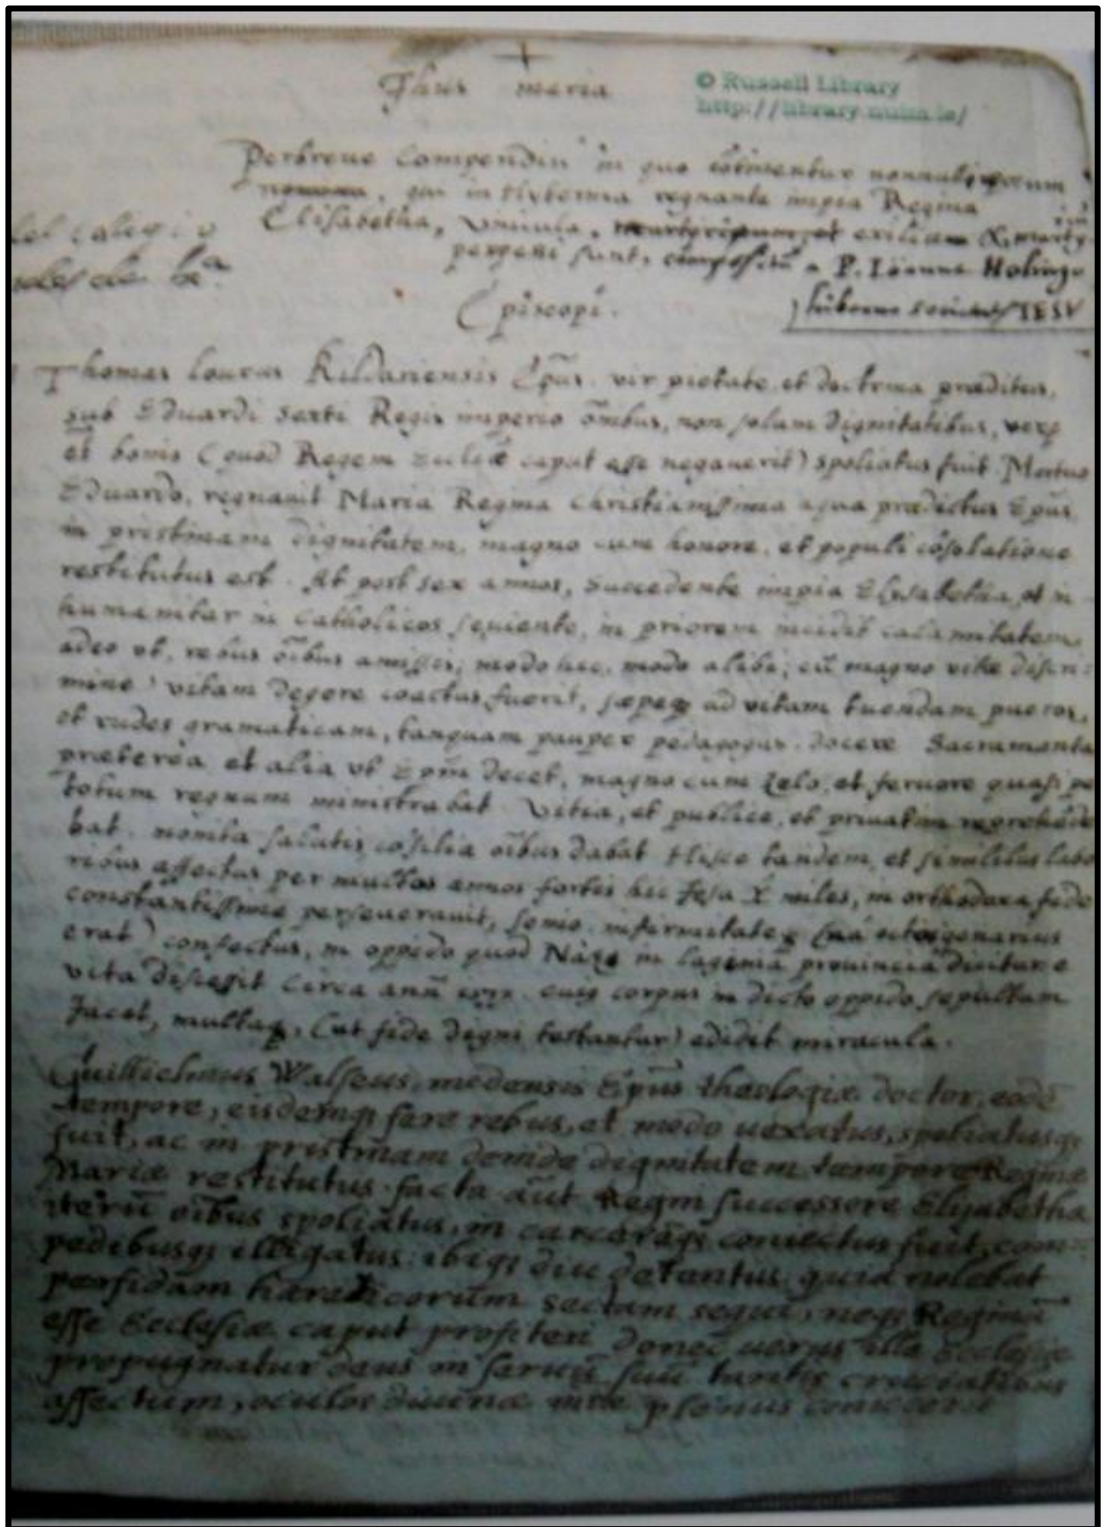 Jhus maria
© Russell Library
http://library.nuim.ie/
Perbreve Compendiũ in quo cõtinentur nonnulorum
nomina, qui in Hybernia regnante impia Regina
Elisabetha, vincula, martyrium, et exilium
perpessi sunt, compositũ a P. Ioanne Holingo
hiberno societatis IESV
del colegio
Episcopi.
Thomas Kildariensis Epũs. vir pietate, et doctrina præditus,
sub Eduardi Sexti Regis imperio õnibus, non solum dignitatibus,
et bonis (quod Regem caput esse negaverit) spoliatus fuit. Mortuo
Eduardo, regnavit Maria Regina Christianissima a qua prædictus Epũs
in pristinam dignitatem, magno cum honore, et populi cõsolatione
restitutus est. At post sex annos, succedente impia Elysabetha, et in
humaniter in Catholicos seviente, in priorem incidit calamitatem
adeo ut, rebus oĩbus amissis, modo hic, modo alibi, cũ magno vitæ discri-
mine vitam degere coactus fuerit, sæpeq ad vitam tuendam pueros,
et rudes gramaticam, tanquam pauper pedagogus, docere. Sacramenta
præterea et alia ut Epũm decet, magno cum zelo, et fervore quasi pe
totum regnum ministrabat. Vitia, et publice, et privatim reprehẽde
bat. monita salutis, cõsilia oĩbus dabat. Hisce tandem, et similibus labo
ribus affectus per multos annos fortis hic miles, in orthodoxa fide
constantissime perseveravit, senio, infirmitateq
erat) confectus, in oppido quod in lagenia provincia dicitur e
vita discessit circa annũ corpus in dicto oppido sepultum
Jacet, multaq, (ut fide digni testantur) edidit miracula.
Guillielmus Walseus, medensis Epũs theologiæ doctor, eodẽ
tempore, eisdemq; fere rebus, et modo uexatus, spoliatusq;
fuit, ac in pristinam deinde dignitatem tempore Reginæ
Mariæ restitutus. facta aũt Regni successore Elysabetha
iterũ oĩbus spoliatus, in carcerẽq; coniectus fuit, com-
pedibusq; illigatus: ibiq; diu detentus quia nolebat
perfidam hæreticorum sectam sequi, neq; Reginã
esse Ecclesiæ caput profiteri donec uerus ille Ecclesiæ
propugnatur deus in servũ suũ tantis cruciatibus
affectum, oculos divinæ plenus